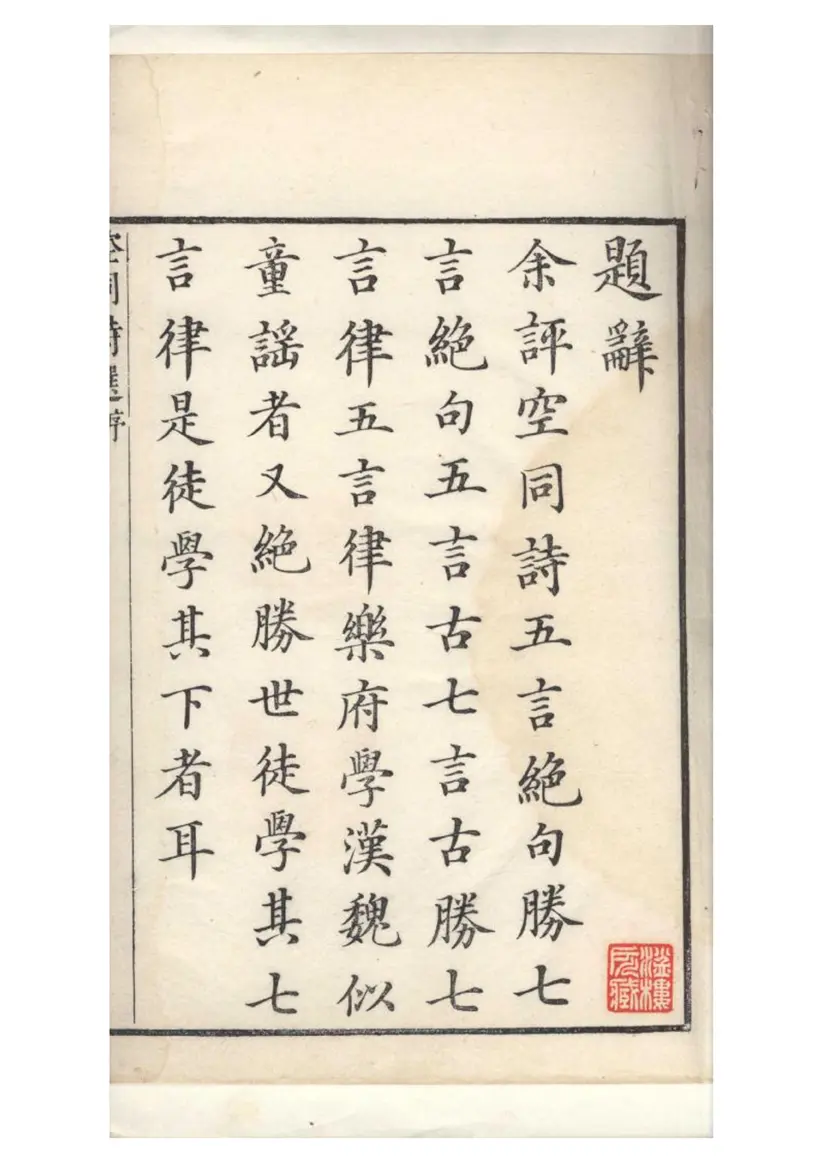 題辭
余評空同詩五言絶句勝七
言絶句五言古七言古勝七
言律五言律樂府學漢魏似
童謡者又絶勝世徒學其七
言律是徒學其下者耳
空同詩選序
樓所藏